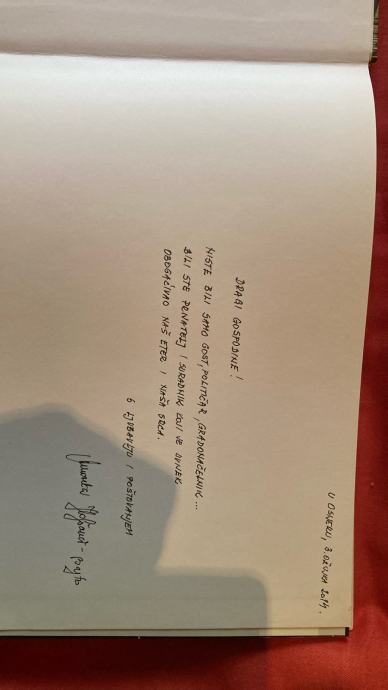 U OSIJEKU, 3. OŽUJKA 2014.
DRAGI GOSPODINE!
NISTE BILI SAMO GOST, POLITIČAR, GRADONAČELNIK...
BILI STE PRIJATELJ I SURADNIK KOJI JE UVIJEK
OBOGAĆIVAO NAŠ ETER I NAŠA SRCA.
S LJUBAVLJU I POŠTOVANJEM